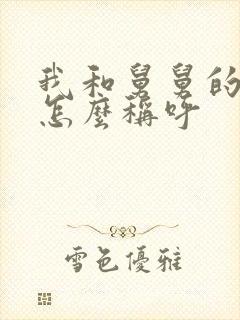 我和舅舅的
怎麼稱呼
雪色優雅